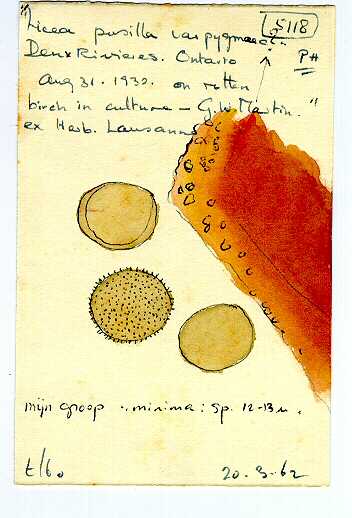 5118
" Licea pusilla var pygmaea
Deux Rivieres. Ontario
PH
Aug 31. 1932. on rotten
birch in culture – G.W. Martin. "
ex Herb. Lausanne
mijn groep minima: sp. 12-13 µ.
20-3-62